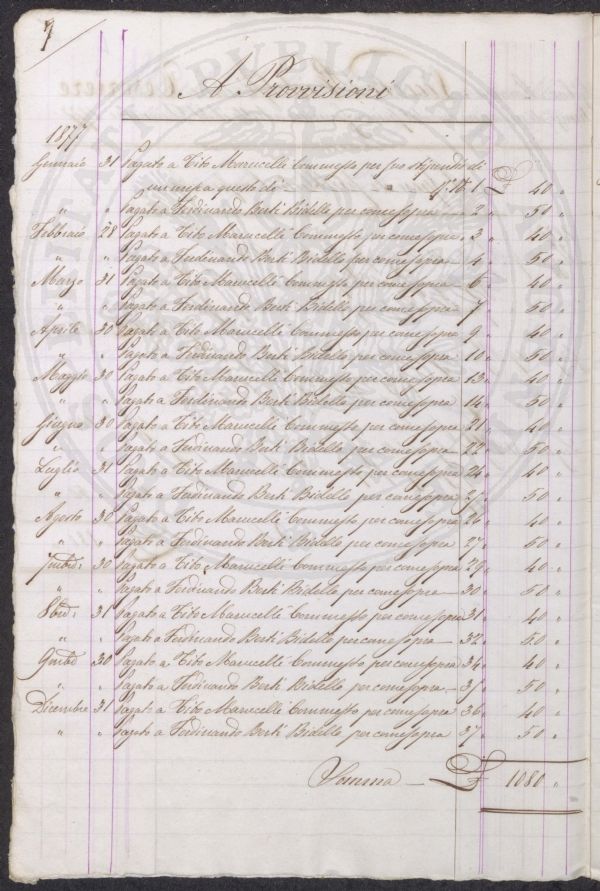 1
A Provvisioni
1877
Gennaio 31 Pagato a Tito Marucelli Commesso per suo stipendio di
un mese a questo dì N° 1 £ 40 "
" " Pagato a Ferdinando Berti Bidello per come sopra 2 " 50 "
Febbraio 28 Pagato a Tito Marucelli Commesso per come sopra 3 " 40 "
" " Pagato a Ferdinando Berti Bidello per come sopra 4 " 50 "
Marzo 31 Pagato a Tito Marucelli Commesso per come sopra 6 " 40 "
" " Pagato a Ferdinando Berti Bidello per come sopra 7 " 50 "
Aprile 30 Pagato a Tito Marucelli Commesso per come sopra 9 " 40 "
" " Pagato a Ferdinando Berti Bidello per come sopra 10 " 50 "
Maggio 30 Pagato a Tito Marucelli Commesso per come sopra 13 " 40 "
" " Pagato a Ferdinando Berti Bidello per come sopra 14 " 50 "
Giugno 30 Pagato a Tito Marucelli Commesso per come sopra 21 " 40 "
" " Pagato a Ferdinando Berti Bidello per come sopra 22 " 50 "
Luglio 31 Pagato a Tito Marucelli Commesso per come sopra 24 " 40 "
" " Pagato a Ferdinando Berti Bidello per come sopra 25 " 50 "
Agosto 30 Pagato a Tito Marucelli Commesso per come sopra 26 " 40 "
" " Pagato a Ferdinando Berti Bidello per come sopra 27 " 50 "
7mbre 30 Pagato a Tito Marucelli Commesso per come sopra 29 " 40 "
" " Pagato a Ferdinando Berti Bidello per come sopra 30 " 50 "
8bre 31 Pagato a Tito Marucelli Commesso per come sopra 31 " 40 "
" " Pagato a Ferdinando Berti Bidello per come sopra 32 " 50 "
9mbre 30 Pagato a Tito Marucelli Commesso per come sopra 34 " 40 "
" " Pagato a Ferdinando Berti Bidello per come sopra 35 " 50 "
Dicembre 31 Pagato a Tito Marucelli Commesso per come sopra 36 " 40 "
" " Pagato a Ferdinando Berti Bidello per come sopra 37 " 50 "
Somma £ 1080 "